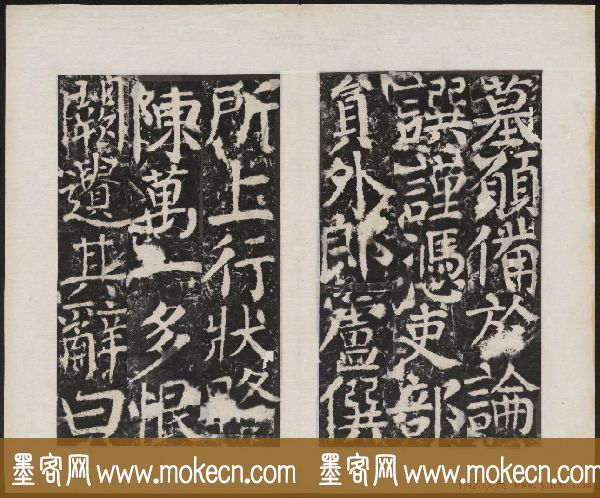 墓願備於論
譔謹憑吏部
貟外郎盧僎
所上行狀略
陳萬一多恨
闕遺其辭曰
墨客网 www.mokecn.com
墨客网 www.mokecn.com